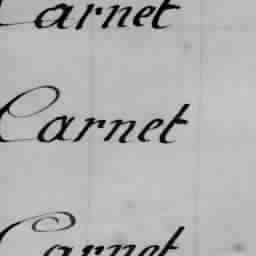 Carnet
Carnet
Carnet